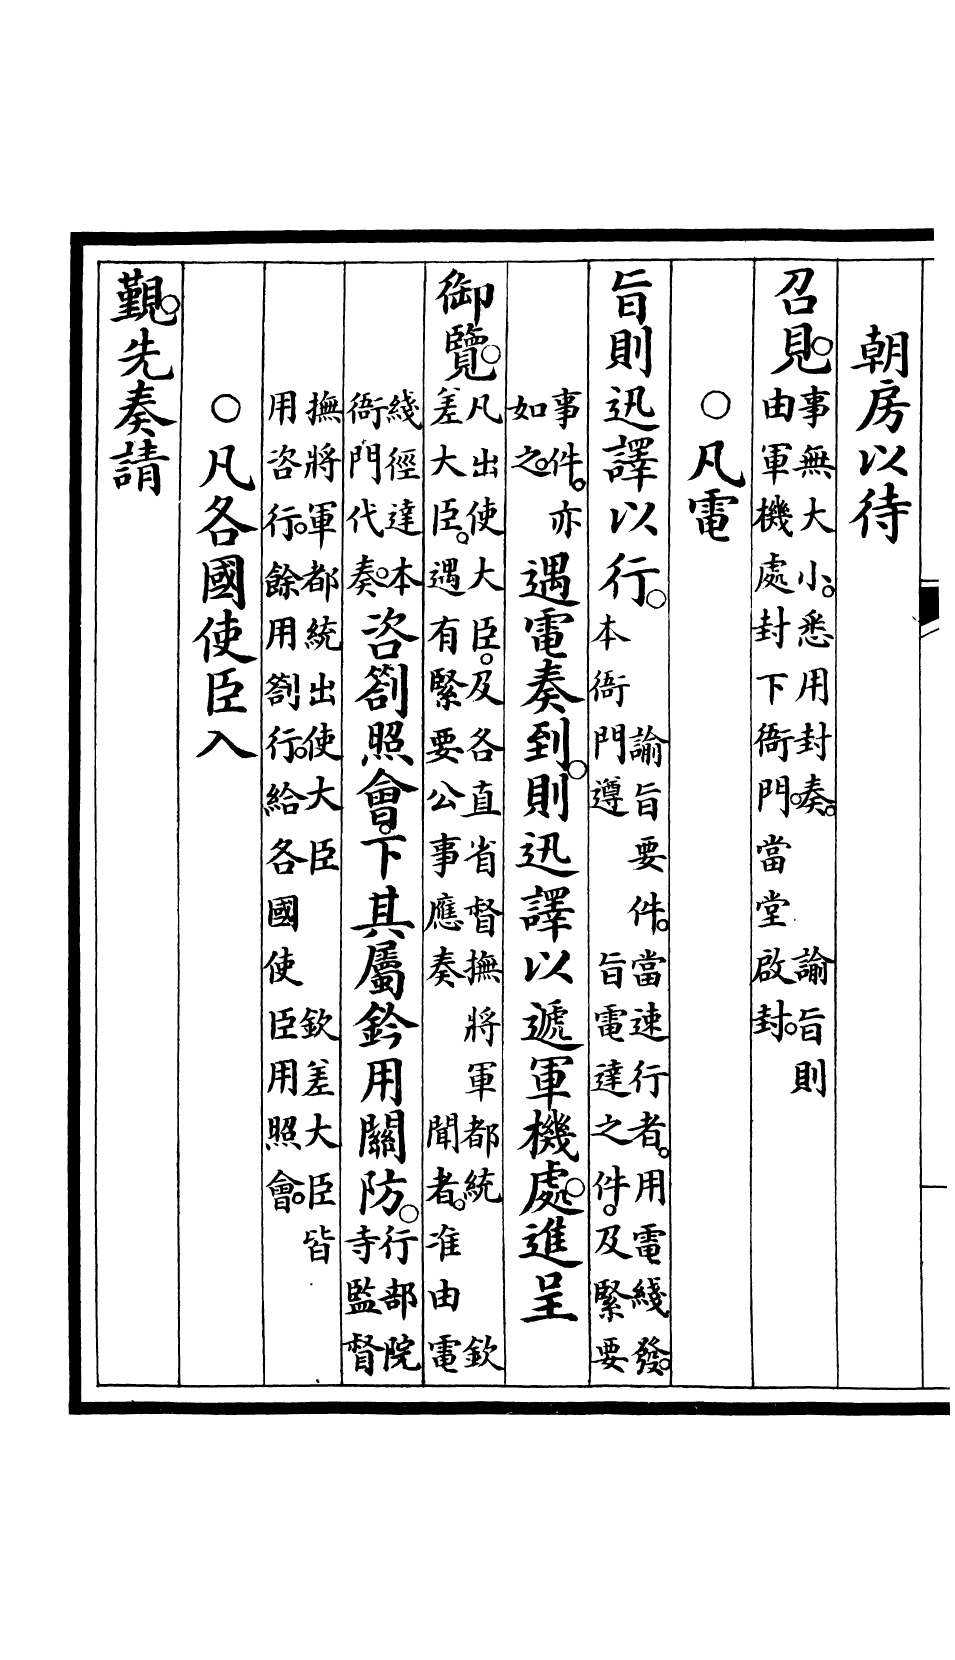 朝房以待
召見。
事無大小。悉用封奏。諭旨則
由軍機處封下衙門。當堂啟封。
○凡電
旨則迅譯以行。
諭旨要件。當速行者。用電綫發。
本衙門遵旨電達之件。及緊要
事件。亦
如之。
遇電奏到。則迅譯以遞軍機處。進呈
御覽。
凡出使大臣。及各直省督撫將軍都統欽
差大臣。遇有緊要公事應奏聞者。准由電
綫徑達本
衙門代奏。
咨劄照會。下其屬鈐用關防。
行部院
寺監督
撫將軍都統出使大臣欽差大臣皆
用咨行。餘用劄行。給各國使臣用照會。
○凡各國使臣入
覲。先奏請